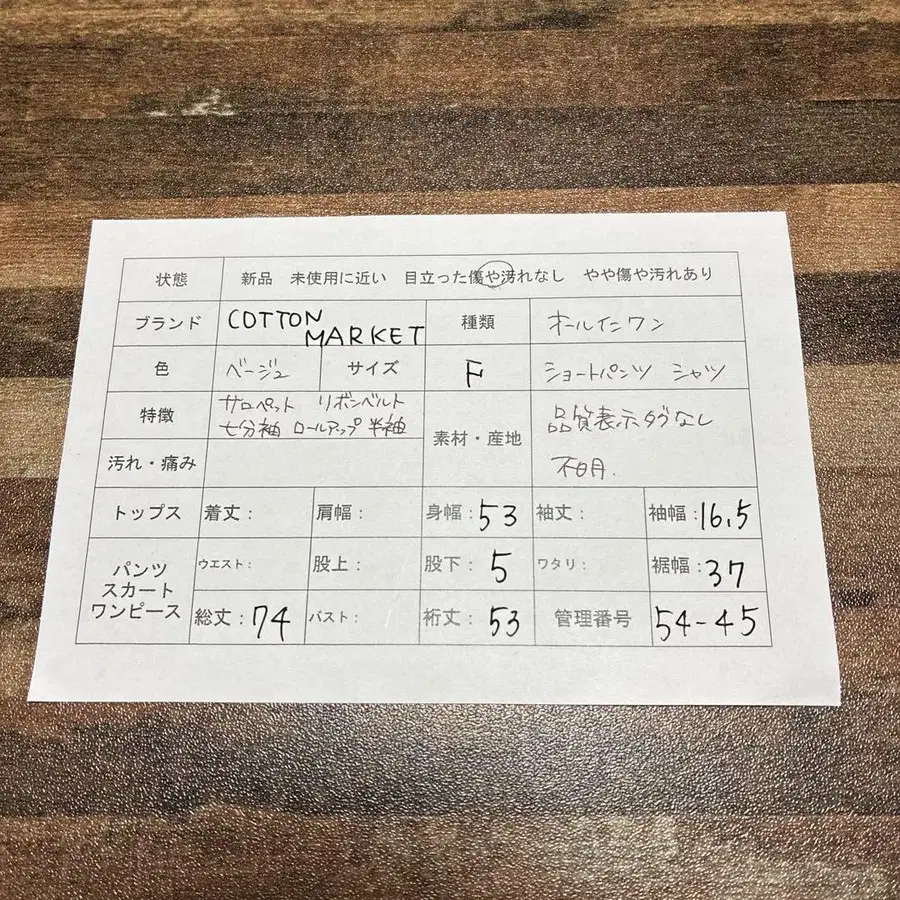 状態 新品 未使用に近い 目立った傷や汚れなし やや傷や汚れあり
ブランド COTTON MARKET 種類 オールインワン
色 ベージュ サイズ F ショートパンツ シャツ
特徴 サロペット リボンベルト
七分袖 ロールアップ 半袖
素材・産地 品質表示タグなし
不明.
汚れ・痛み
トップス 着丈: 肩幅: 身幅:53 袖丈: 袖幅:16.5
パンツ スカート ワンピース
ウエスト: 股上: 股下:5 ワタリ: 裾幅:37
総丈:74 バスト: 裄丈:53 管理番号 54-45